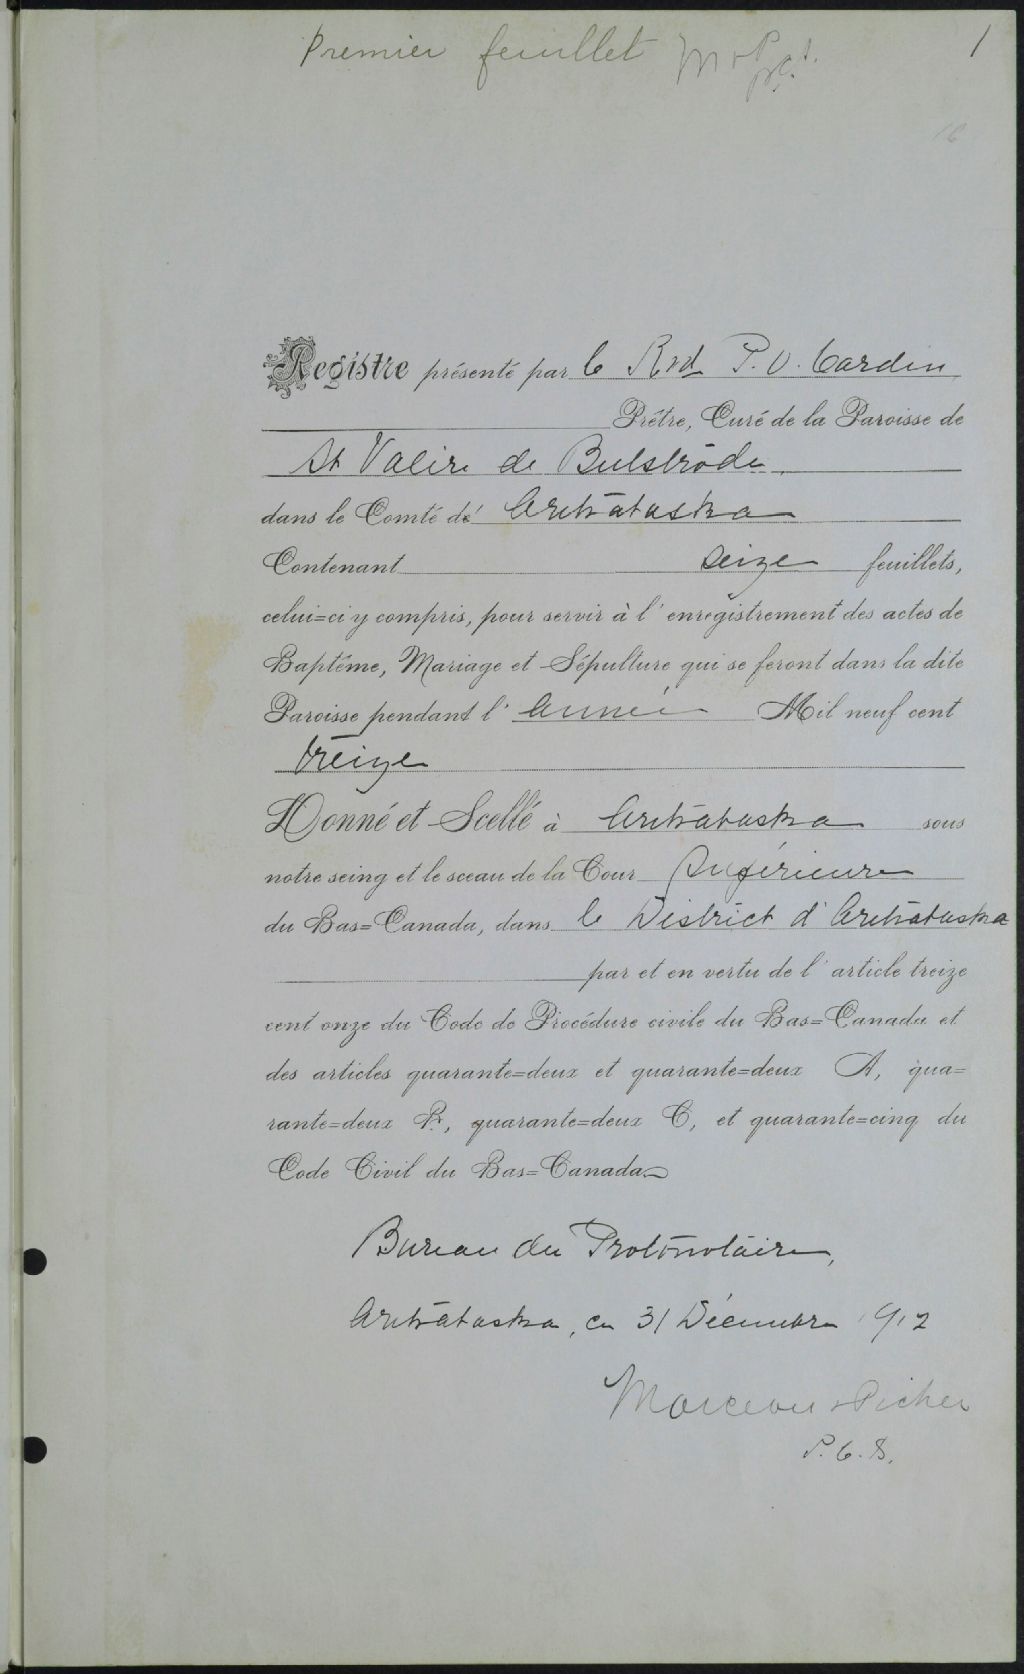 Premier feuillet M & P p.c.s. 1
16
Registre présenté par le Rvd P. O. Cardin
Prêtre, Curé de la Paroisse de
St Valère de Bulstrode
dans le Comté de Arthabaska
Contenant seize feuillets,
celui=ci y compris, pour servir à l'enregistrement des actes de
Baptême, Mariage et Sépulture qui se feront dans la dite
Paroisse pendant l'année Mil neuf cent
treize
Donné et Scellé à Arthabaska sous
notre seing et le sceau de la Cour Supérieure
du Bas=Canada, dans le District d'Arthabaska
par et en vertu de l'article treize
cent onze du Code de Procédure civile du Bas=Canada et
des articles quarante=deux et quarante=deux A, qua=
rante=deux B, quarante=deux C, et quarante=cinq du
Code Civil du Bas=Canada
Bureau du Protonotaire,
Arthabaska, ce 31 Décembre 1912
Marceau & Picher
P. C. S.